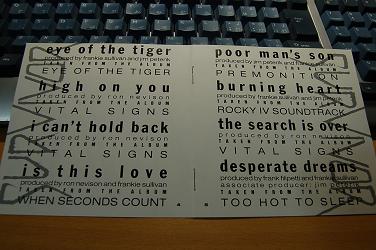 eye of the tiger
produced by frankie sullivan and jim peterik
TAKEN FROM THE ALBUM
EYE OF THE TIGER
high on you
produced by ron nevison
TAKEN FROM THE ALBUM
VITAL SIGNS
i can't hold back
produced by ron nevison
TAKEN FROM THE ALBUM
VITAL SIGNS
is this love
produced by ron nevison and frankie sullivan
TAKEN FROM THE ALBUM
WHEN SECONDS COUNT
poor man's son
produced by jim peterik and frankie sullivan
TAKEN FROM THE ALBUM
PREMONITION
burning heart
produced by frankie sullivan and jim peterik
TAKEN FROM THE ALBUM
ROCKY IV SOUNDTRACK
the search is over
produced by ron nevison
TAKEN FROM THE ALBUM
VITAL SIGNS
desperate dreams
produced by frank filipetti and frankie sullivan
associate producer: jim peterik
TAKEN FROM THE ALBUM
TOO HOT TO SLEEP